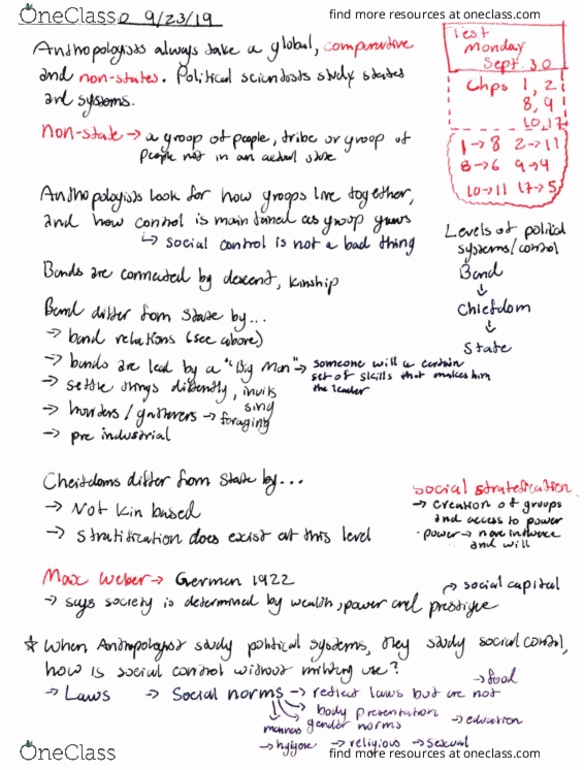 OneClass 9/23/19
find more resources at oneclass.com
Test
Monday
Sept. 30
Chps 1, 2
8, 9
10, 17
1→8 2→11
8→6 9→4
10→11 17→5
Anthropologists always take a global, comparative
and non-states. Political scientists study states
and systems.
Non-state → a group of people, tribe or group of
people not in an actual state
Anthropologists look for how groups live together,
and how control is maintained as group grows
↳ social control is not a bad thing
Levels of political
systems/control
Band
↓
Chiefdom
↓
State
Bands are connected by descent, kinship
Band differ from State by...
→ band relations (see above)
→ bands are lead by a "Big Man" → someone will a certain
set of skills that makes him
the leader
→ settle things differently,
sing
→ horders/gatherers → foraging
→ pre industrial
Cheifdoms differ from State by...
→ Not Kin based
→ Stratification does exist at this level
social stratification
→ creation of groups
and access to power
• power → more influence
and will
Max Weber → German 1922
→ social capital
→ says society is determined by wealth, power and prestigue
☆ When Anthropologist study political systems, they study social control,
how is social control without military use?
→ food
→ Laws → Social norms → reflect laws but are not
→ body presentation
manners gender norms → education
→ hygiene → religious → sexual
OneClass
find more resources at oneclass.com